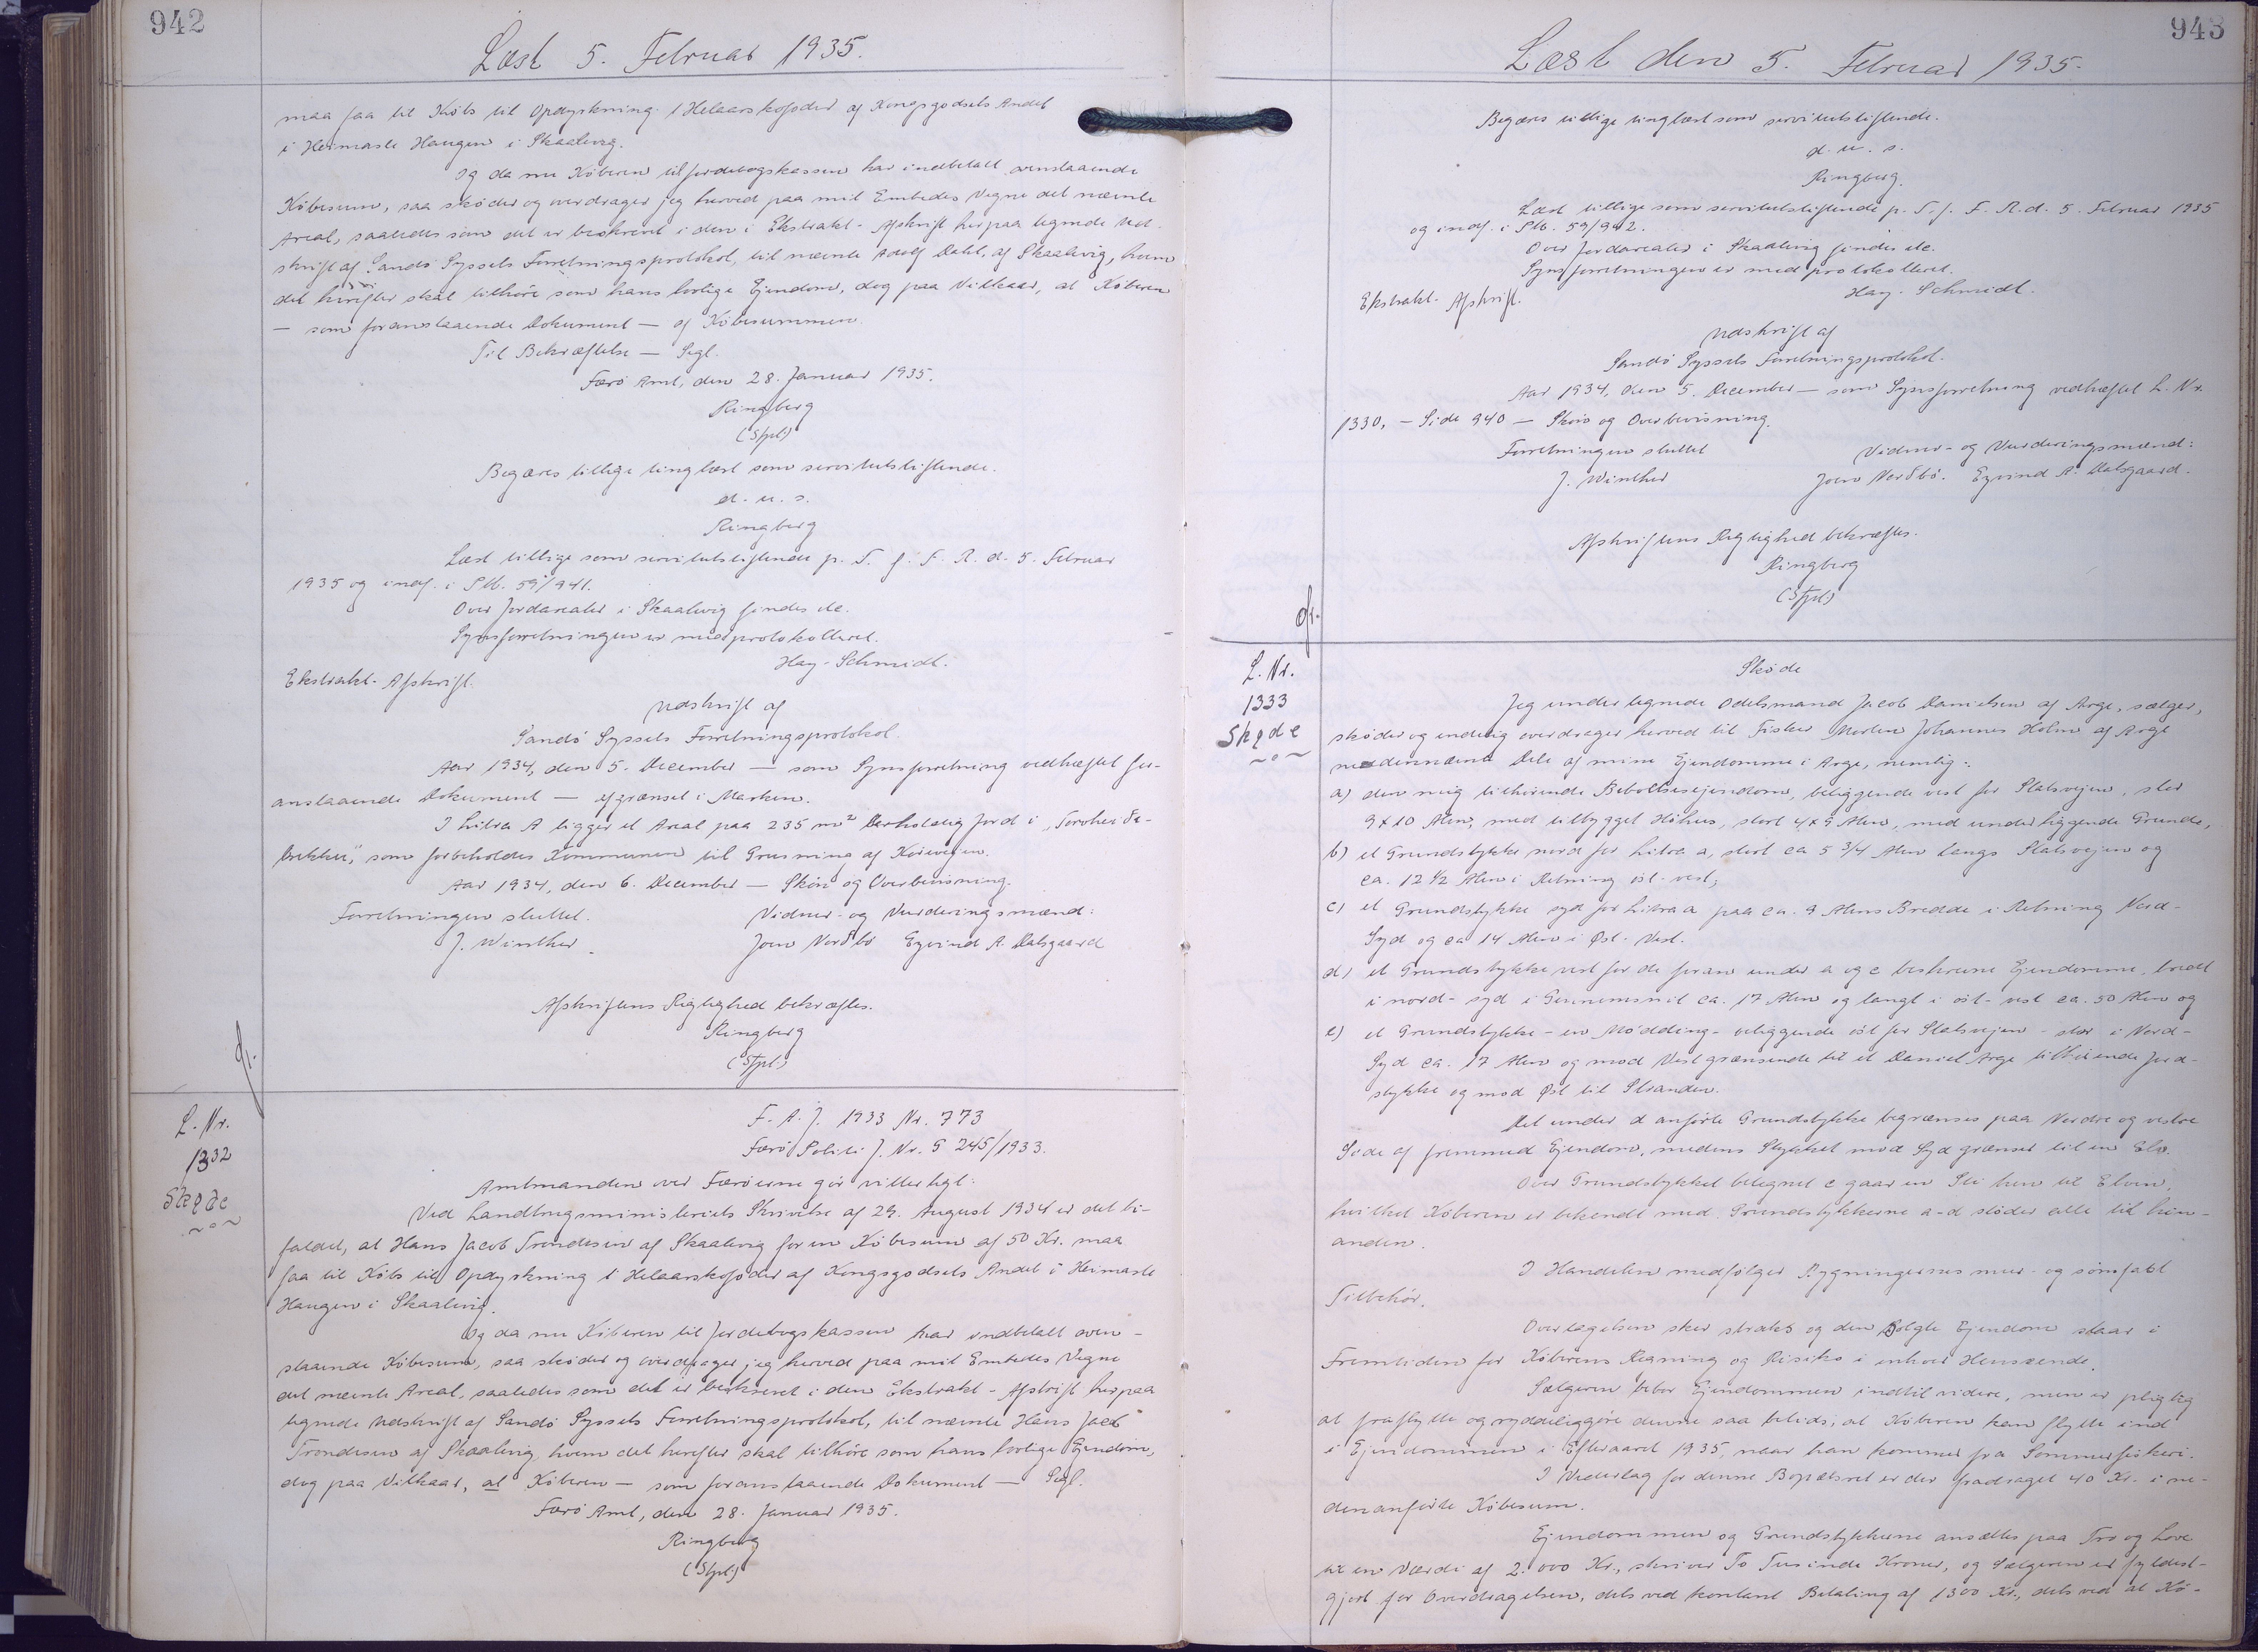 942
Læst 5. Februar 1935.
maa faa til Købs til Opdyrkning 1 Helaarskofoder af Kongsgodsets Andel
i Heimaste Haugen i Skaalevig.
Og da nu Køberen til Jordebogskassen har indbetalt ovenstaaende
Købesum, saa skøder og overdrager jeg herved paa mit Embedes Vegne det nævnte
Areal, saaledes som det er beskrevet i den i Ekstrakt-Afskrift herpaa tegnede Ud-
skrift af Sandø Syssels Forretningsprotokol, til nævnte Adolf Dahl, af Skaalevig, hvem
det herefter skal tilhøre som hans lovlige Ejendom, dog paa Vilkaar, at Køberen
— som foranstaaende Dokument — af Købesummen.
Til Bekræftelse — Segl.
Færø Amt, den 28. Januar 1935.
Ringberg
(Stpl.)
Begæres tillige tinglæst som servitutstiftende.
d. u. s.
Ringberg
Læst tillige som servitutstiftende p. T. f. F. R. d. 5. Februar
1935 og indf. i Ptb. 59/941.
Over Jordarealer i Skaalevig findes de.
Synsforretningen er medprotokolleret.
Hay-Schmidt.
Ekstrakt-Afskrift.
Udskrift af
Sandø Syssels Forretningsprotokol.
Aar 1934, den 5. December — som Synsforretning vedhæftet for-
anstaaende Dokument — afgrænset i Marken.
I Litra A ligger et Areal paa 235 m² Jord i
som forbeholdes Kommunen til Grusning af Køreveien.
Aar 1934, den 6. December — Skøn og Overbevisning.
Forretningen sluttet. Vidner- og Vurderingsmænd:
J. Winther. Joen Norðbø Eyvind A. Dalsgaard
Afskriftens Rigtighed bekræftes.
Ringberg
(Stpl.)
L. Nr.
1332
Skøde
F. A. J. 1933 Nr. 773
Færø Politi J. Nr. G 245/1933.
Amtmanden over Færøerne gør vitterligt:
Ved Landbrugsministeriets Skrivelse af 29. August 1934 er det bi-
faldet, at Hans Jacob Trondesen af Skaalevig for en Købesum af 50 Kr. maa
faa til Købs til Opdyrkning 1 Helaarskofoder af Kongsgodsets Andel i Heimaste
Haugen i Skaalevig.
Og da nu Køberen til Jordebogskassen har indbetalt oven-
staaende Købesum, saa skøder og overdrager jeg herved paa mit Embedes Vegne
det nævnte Areal, saaledes som det er beskrevet i den Ekstrakt-Afskrift herpaa
tegnede Udskrift af Sandø Syssels Forretningsprotokol, til nævnte Hans Jacob
Trondesen af Skaalevig, hvem det herefter skal tilhøre som hans lovlige Ejendom,
dog paa Vilkaar, at Køberen — som foranstaaende Dokument — Segl.
Færø Amt, den 28. Januar 1935.
Ringberg
(Stpl.)
943
Læst den 5. Februar 1935.
Begæres tillige tinglæst som servitutstiftende.
d. u. s.
Ringberg.
Læst tillige som servitutstiftende p. T. f. F. R. d. 5. Februar 1935
og indf. i Ptb. 59/942.
Over Jordarealer i Skaalevig findes de.
Synsforretningen er medprotokolleret.
Hay-Schmidt.
Ekstrakt-Afskrift.
Udskrift af
Sandø Syssels Forretningsprotokol.
Aar 1934, den 5. December — som Synsforretning vedhæftet L. Nr.
1330, — Side 940 — Skøn og Overbevisning.
Forretningen sluttet Vidner- og Vurderingsmænd:
J. Winther Joen Norðbø. Eyvind A. Dalsgaard.
Afskriftens Rigtighed bekræftes.
Ringberg
(Stpl.)
L. Nr.
1333
Skøde
Skøde
Jeg undertegnede Odelsmand Jacob Danielsen af Arge, sælger,
skøder og endelig overdrager herved til Fisker Morten Johannes Holm af Arge
nedennævnte Dele af mine Ejendomme i Arge, nemlig:
a) den mig tilhørende Beboelsesejendom, beliggende vest for Statsvejen, stor
9 x 10 Alen, med tilbygget Høhus, stort 4 x 9 Alen, med underliggende Grunde,
b) et Grundstykke nord for Litra a, stort ca 5 3/4 Alen langs Statsvejen og
ca. 12 1/2 Alen i Retning øst-vest;
c) et Grundstykke syd for Litra a paa ca. 9 Alens Bredde i Retning Nord-
Syd og ca 14 Alen i Øst-Vest.
d) et Grundstykke vest for de foran under a og c beskrevne Ejendomme, bredt
i nord-syd i Gennemsnit ca. 17 Alen og langt i øst-vest ca. 50 Alen og
e) et Grundstykke - en Mødding - beliggende øst for Statsvejen - stor i Nord-
Syd ca. 17 Alen og mod Vest grænsende til et Daniel Arge tilhørende Jord-
stykke og mod Øst til Stranden.
Det under d anførte Grundstykke begrænses paa Nordre og vestre
Side af fremmed Ejendom, medens Stykket mod Syd grænser til en Elv.
Over Grundstykket betegnet c gaar en Sti hen til Elven,
hvilket Køberen er bekendt med. Grundstykkerne a-d støder alle til hin-
anden.
I Handelen medfølger Bygningernes mur- og sømfast
Tilbehør.
Overtagelsen sker straks og den solgte Ejendom staar i
Fremtiden for Køberens Regning og Risiko i enhver Henseende.
Sælgeren bebor Ejendommen indtil videre, men er pligtig
at fraflytte og ryddeliggøre denne saa betids, at Køberen kan flytte ind
i Ejendommen i Efteraaret 1935, naar han kommer fra Sommerfiskeri.
I Vederlag for denne Bopælsret er der fradraget 40 Kr. i ne-
denanførte Købesum.
Ejendommen og Grundstykkerne ansættes paa Tro og Love
til en Værdi af 2.000 Kr., skriver To Tusinde Kroner, og Sælgeren er fyldest-
gjort for Overdragelsen, dels ved kontant Betaling af 1300 Kr., dels ved at Kø-